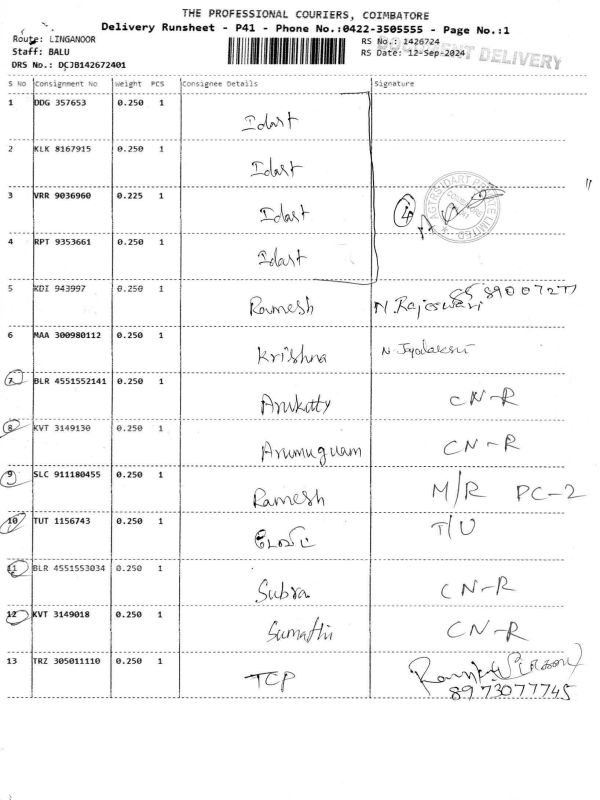 THE PROFESSIONAL COURIERS, COIMBATORE
Delivery Runsheet - P41 - Phone No.:0422-3505555 - Page No.:1
Route: LINGANOOR
RS No.: 1426724
Staff: BALU
RS Date: 12-Sep-2024
DELIVERY
DRS No.: DCJB142672401
S No Consignment No Weight PCS Consignee Details Signature
1 DDG 357653 0.250 1
Idast
2 KLK 8167915 0.250 1
Idast
3 VRR 9036960 0.225 1
Idast
4
4 RPT 9353661 0.250 1
Idast
5 KDI 943997 0.250 1
Ramesh N. Rajeswari
6 MAA 300980112 0.250 1
Krishna
7 BLR 4551552141 0.250 1
Arukutty CN-R
8 KVT 3149130 0.250 1
Arumuguam CN-R
9 SLC 911180455 0.250 1
Ramesh M/R PC-2
10 TUT 1156743 0.250 1 T/U
11 BLR 4551553034 0.250 1
Subra CN-R
12 KVT 3149018 0.250 1
Sumathi CN-R
13 TRZ 305011110 0.250 1
TCP
8973077745